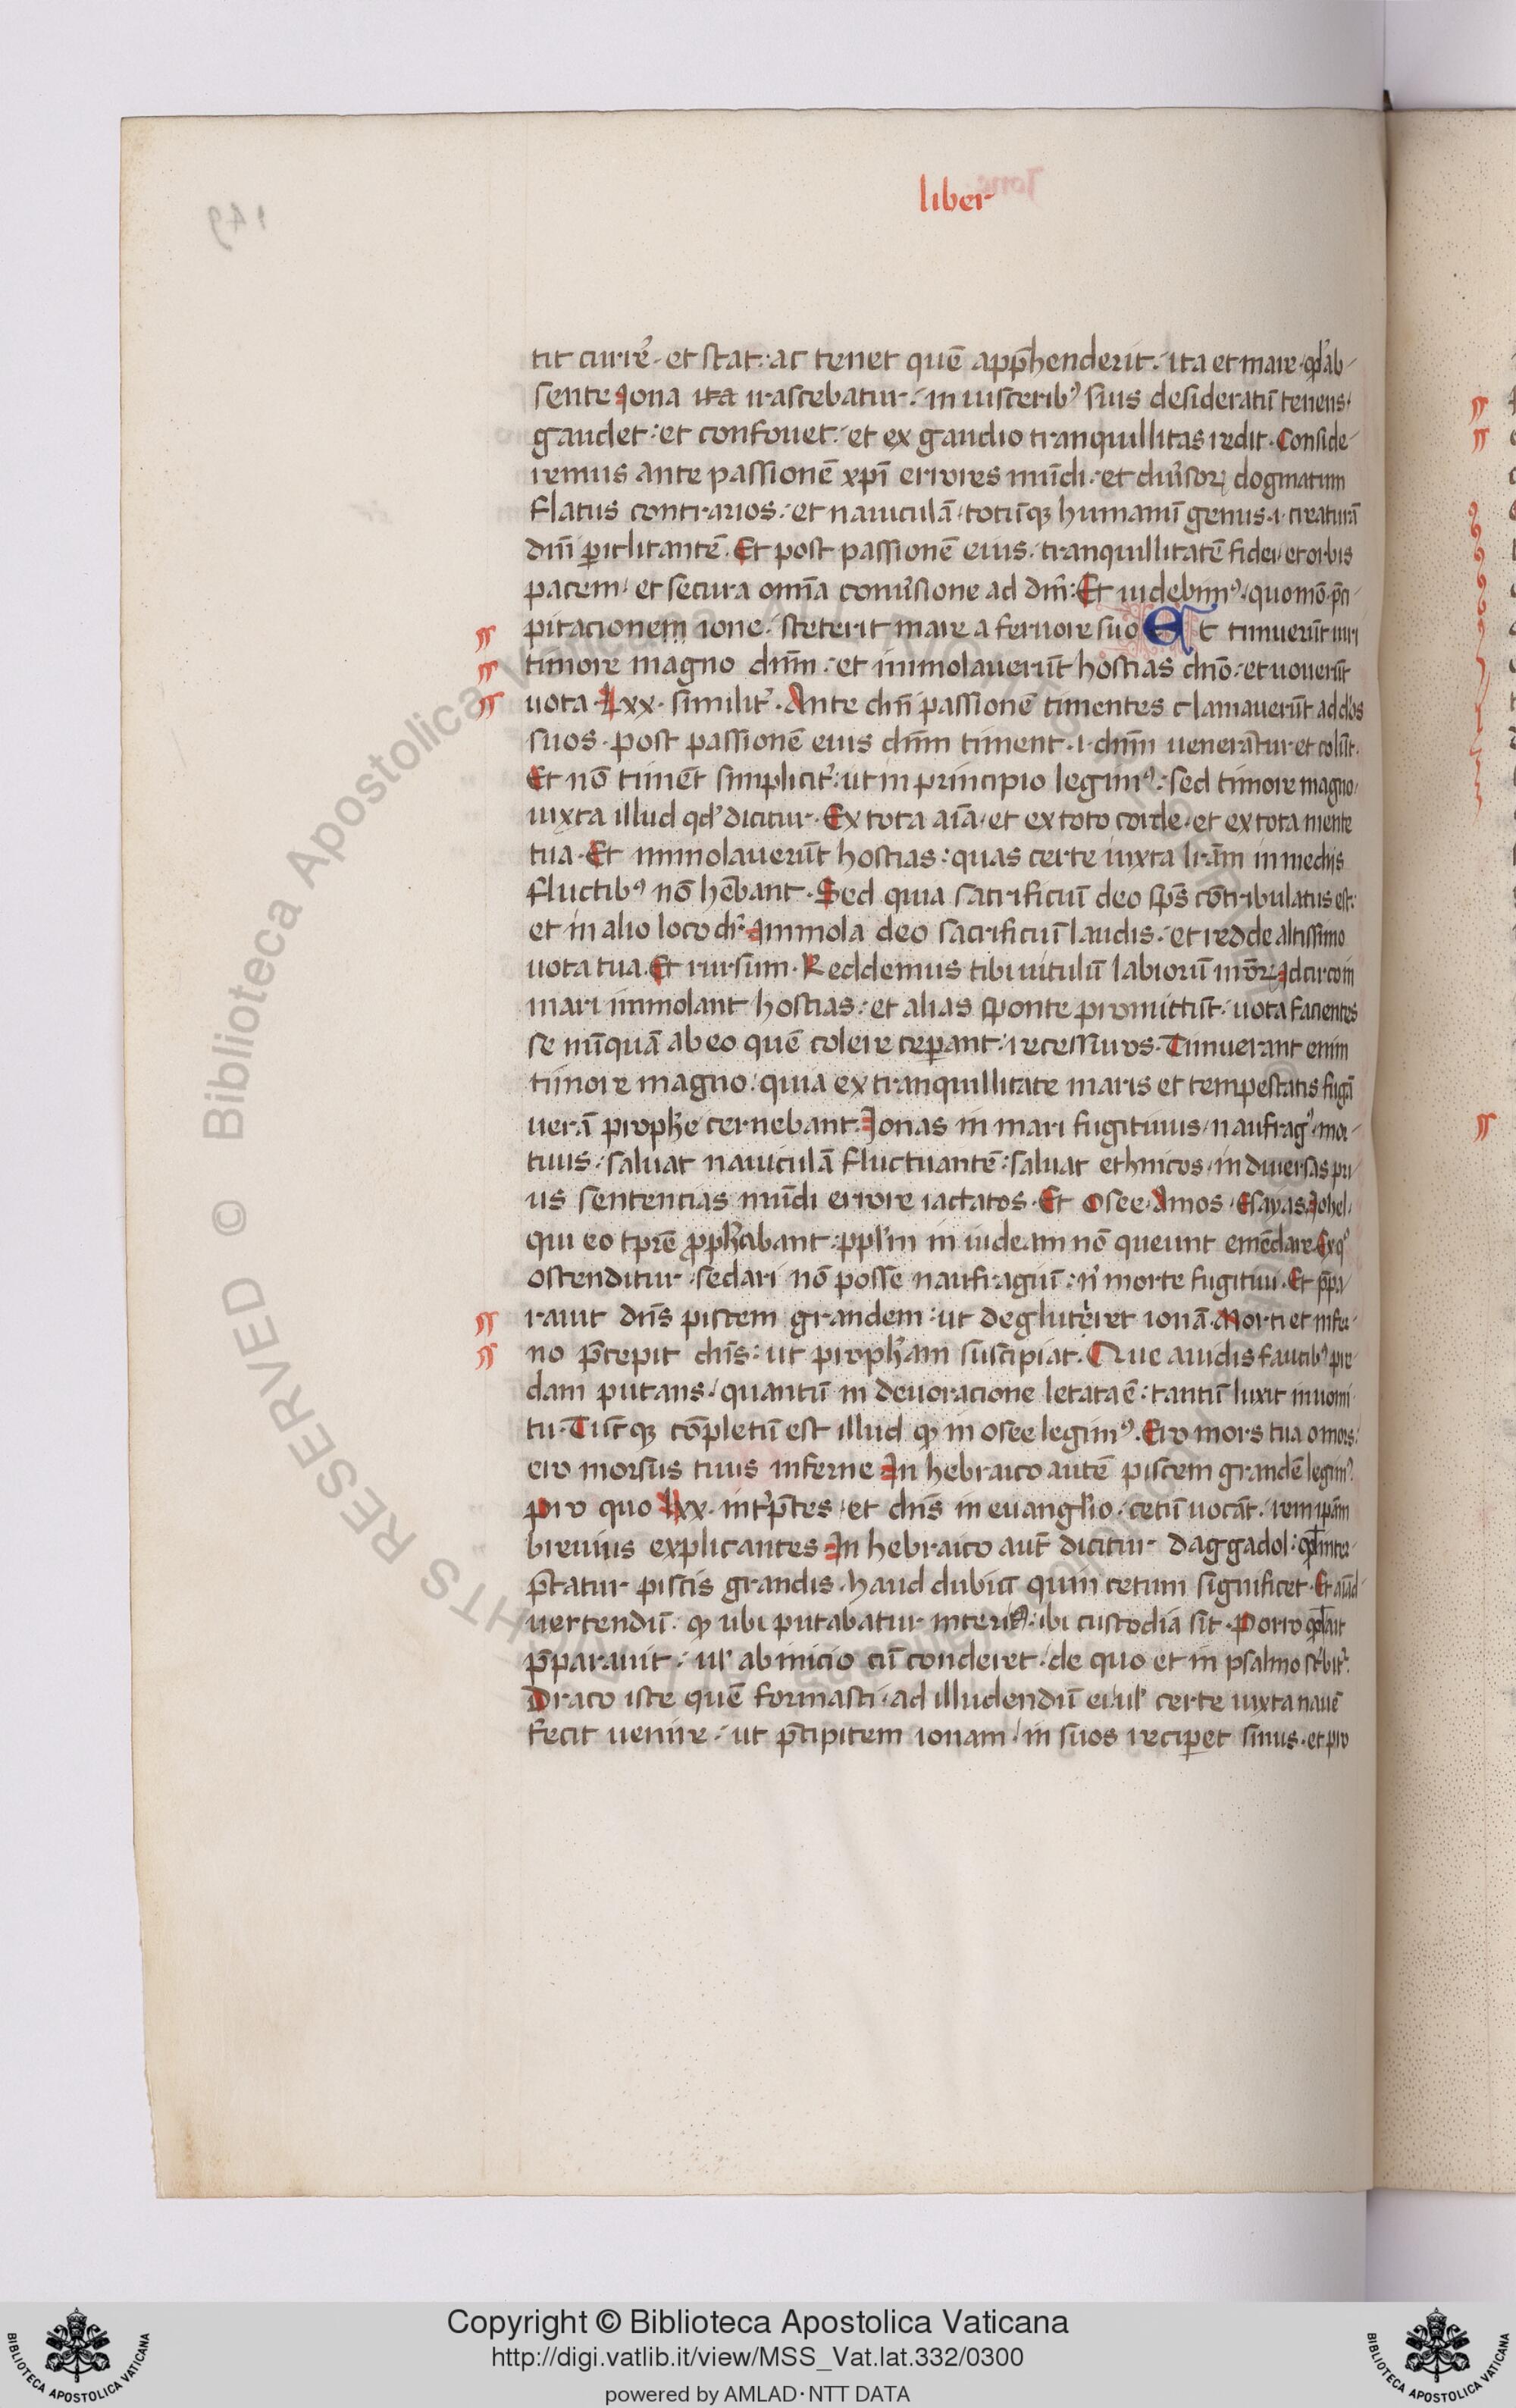 liber
149
tit currẽ. et stat: ac tenet quẽ app̃henderit. ita et mare. qd' ab-
sente Jona ita irascebatur. in uiscerib⁹ suis desideratũ tenens.
gaudet: et confouet. et ex gaudio tranquillitas redit. Conside-
remus ante passionẽ xp̃i errores mũdi. et diũsoꝝ dogmatum
flatus contrarios. et nauiculã. totũqꝫ humanũ genus .i. creaturã
dñi ꝑiclitantẽ. Et post passionẽ eius. tranquillitatẽ fidei. et orbis
pacem. et secura omĩa conũsione ad dm̃. Et uidebim⁹. quo mõ. p̃ci-
pitacionem ione. steterit mare a feruore suo Et timuerũt uiri
timore magno dñm. et immolauerũt hostias dño. et uouerũt
uota. Lxx. similit'. Ante dñi passionẽ timentes clamauerũt ad dõs
suos. post passionẽ eius dñm timent .i. dñm uenerãtur et colũt.
Et nõ timẽt simplicit'. ut in principio legim⁹. sed timore magno.
iuxta illud qd' dicitur. Ex tota aĩa. et ex toto corde. et ex tota mente
tua. Et immolauerũt hostias: quas certe iuxta lr̃am in medijs
fluctib⁹ nõ hẽbant. Sed quia sacrificiũ deo sp̃s cõtribulatus est:
et in alio loco dr̃. Immola deo sacrificiũ laudis. et redde altissimo
uota tua. Et rursum. Reddemus tibi uitulũ labiorũ nr̃oꝝ. Idcirco in
mari immolant hostias: et alias sponte promittũt. uota facientes
se nũquã ab eo quẽ colere ceꝑant. recessuros. Timuerant enim
timore magno. quia ex tranquillitate maris et tempestatis fugã
uerã prophe cernebant. Jonas in mari fugitiuus. naufrag⁹. mor-
tuus. saluat nauiculã fluctuantẽ: saluat ethnicos. in diuersas pri-
us sentencias mũdi errore iactatos. Et Osee. Amos. Esayas. Johel.
qui eo tp̃re ꝓph'abant: pp̃l'm in iudeam nõ queunt emẽdare. Ex q°
ostenditur. sedari nõ posse naufragiũ: n' morte fugitiui. Et p̃pa-
rauit dñs piscem grandem: ut deglutiret ionã. Morti et infer-
no p̃cepit dñs: ut proph'am suscipiat. Que auidis faucib⁹ pre-
dam putans. quantũ in deuoracione letata ẽ: tantũ luxit in uomi-
tu. Tũcqꝫ cõpletũ est illud qꝫ in osee legim⁹. Ero mors tua o mors.
ero morsus tuus inferne. In hebraico autẽ piscem grandẽ legim⁹.
pro quo Lxx. int'p̃tes. et dñs in euangl'io. cetũ uocãt. rem ip̃am
breuius explicantes. In hebraico aut̃ dicitur daggadol: qd' inter-
p̃tatur piscis grandis. haud dubiũ quin cetum significet. Et aĩad-
uertendũ. qꝫ ubi putabatur interit⁹. ibi custodia sit. Porro qd' ait
p̃parauit. ul' ab inicio cũ conderet. de quo et in psalmo sc'bit'.
Draco iste quẽ formasti. ad illudendũ ei. ul' certe iuxta nauẽ
fecit uenire. ut p̃cipitem ionam. in suos reciꝑet sinus. et pro
Copyright © Biblioteca Apostolica Vaticana
http://digi.vatlib.it/view/MSS_Vat.lat.332/0300
powered by AMLAD·NTT DATA